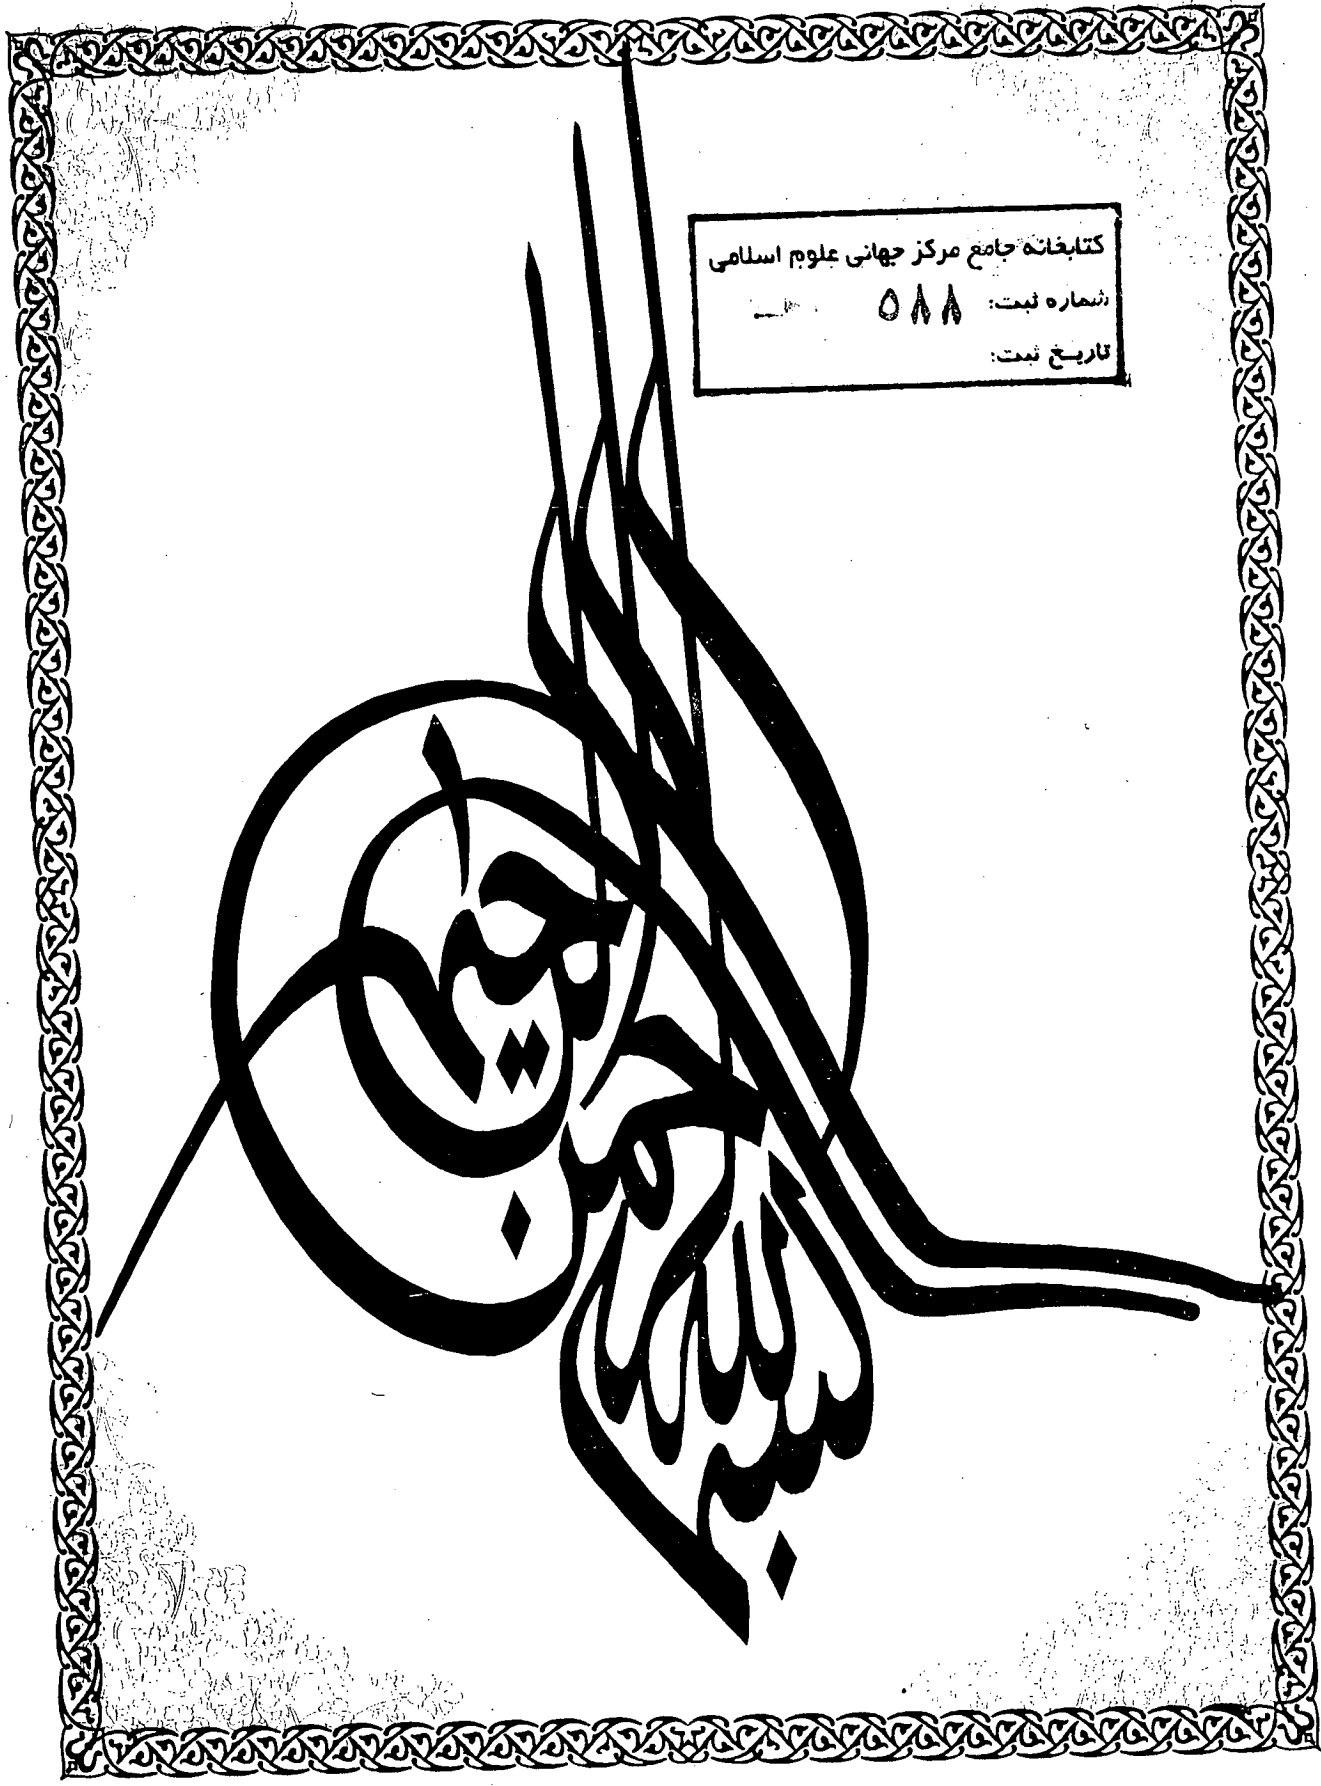 کتابخانه جامع مرکز جهانی علوم اسلامی
شماره ثبت: ۵۸۸
تاریخ ثبت:
بسم الله الرحمن الرحيم